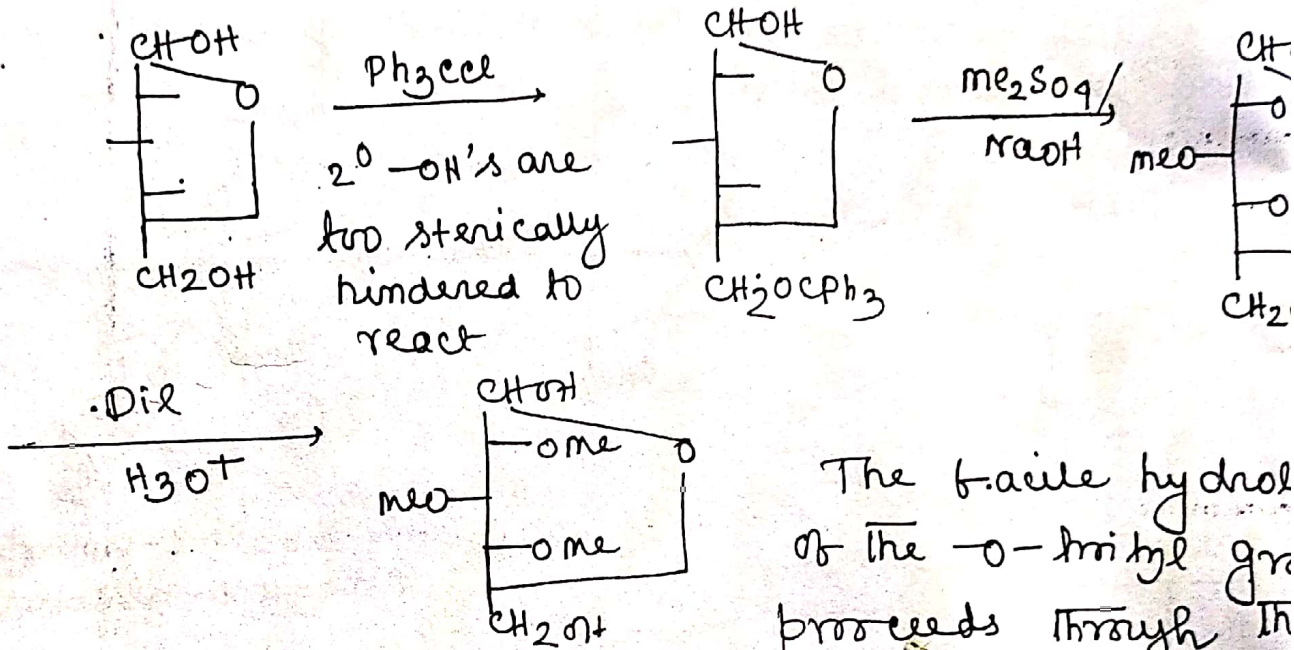 CHOH
O
CH2OH
Ph3CCl
2° -OH's are
too sterically
hindered to
react
CHOH
O
CH2OCPh3
Me2SO4/
NaOH
CH
O
meo
O
CH2
.Dil
H3O+
CHOH
OMe
O
meo
OMe
CH2OH
The facile hydrol
of The -O-trityl gr
proceeds Through Th